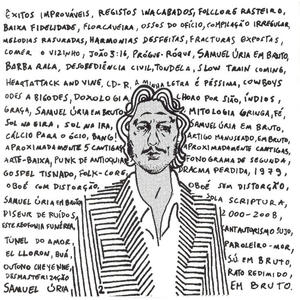 ÊXITOS IMPROVÁVEIS, REGISTOS INACABADOS, FOLCLORE RASTEIRO,
BAIXA FIDELIDADE, FLORCAVEIRA, OSSOS DO OFÍCIO, COMPILAÇÃO IRREGULAR,
MELODIAS RASURADAS, HARMONIAS DESFEITAS, FRACTURAS EXPOSTAS,
COMER O VIZINHO, JOÃO 3:16, PRÓGNE-RÓQUE, SAMUEL ÚRIA EM BRUTO,
BARBA RALA, DESOBEDIÊNCIA CIVIL, TONDELA, SLOW TRAIN COMING,
HEARTATTACK AND VINE, CD-R, A LETRA É PÉSSIMA, COWBOYS
ODES A BIGODES, DOXOLOGIA CHORO POR SIÃO, ÍNDIOS,
GRAÇA, SAMUEL ÚRIA EM BRUTO, MITOLOGIA GRINGA, FÉ,
SOL NA EIRA, SOL NA IRA, SAMUEL ÚRIA EM BRUTO,
CÁLCIO PARA O GESO, ARTIGO MANUSEADO, EM BRUTO,
APROXIMADAMENTE 5 CANTIGAS, APROXIMADAMENTE CANTIGAS,
ARTE-BAIXA, PUNK DE ANTIQUÁ FONOGRAMA DE SEGUNDA,
GOSPEL TISNADO, FOLK-CORE, DRACMA PERDIDA, 1979,
OBOÉ COM DISTORÇÃO, OBOÉ SEM DISTORÇÃO,
SAMUEL ÚRIA EM BRUTO, SOLA SCRIPTURA,
DISEUR DE RUÍDOS, 2000-2008,
ESTEREOFONIA SUMÉRIA, ANTIAUTORISMO SUJO,
TÚNEL DO AMOR, PAROLEIRO-MOR,
EL LLORON, BUÁ, SÚ EM BRUTO,
OUTONO CHEYENNE, RATO REDIMIDO,
DESMASTERIZAÇÃO EM BRUTO.
SAMUEL ÚRIA,